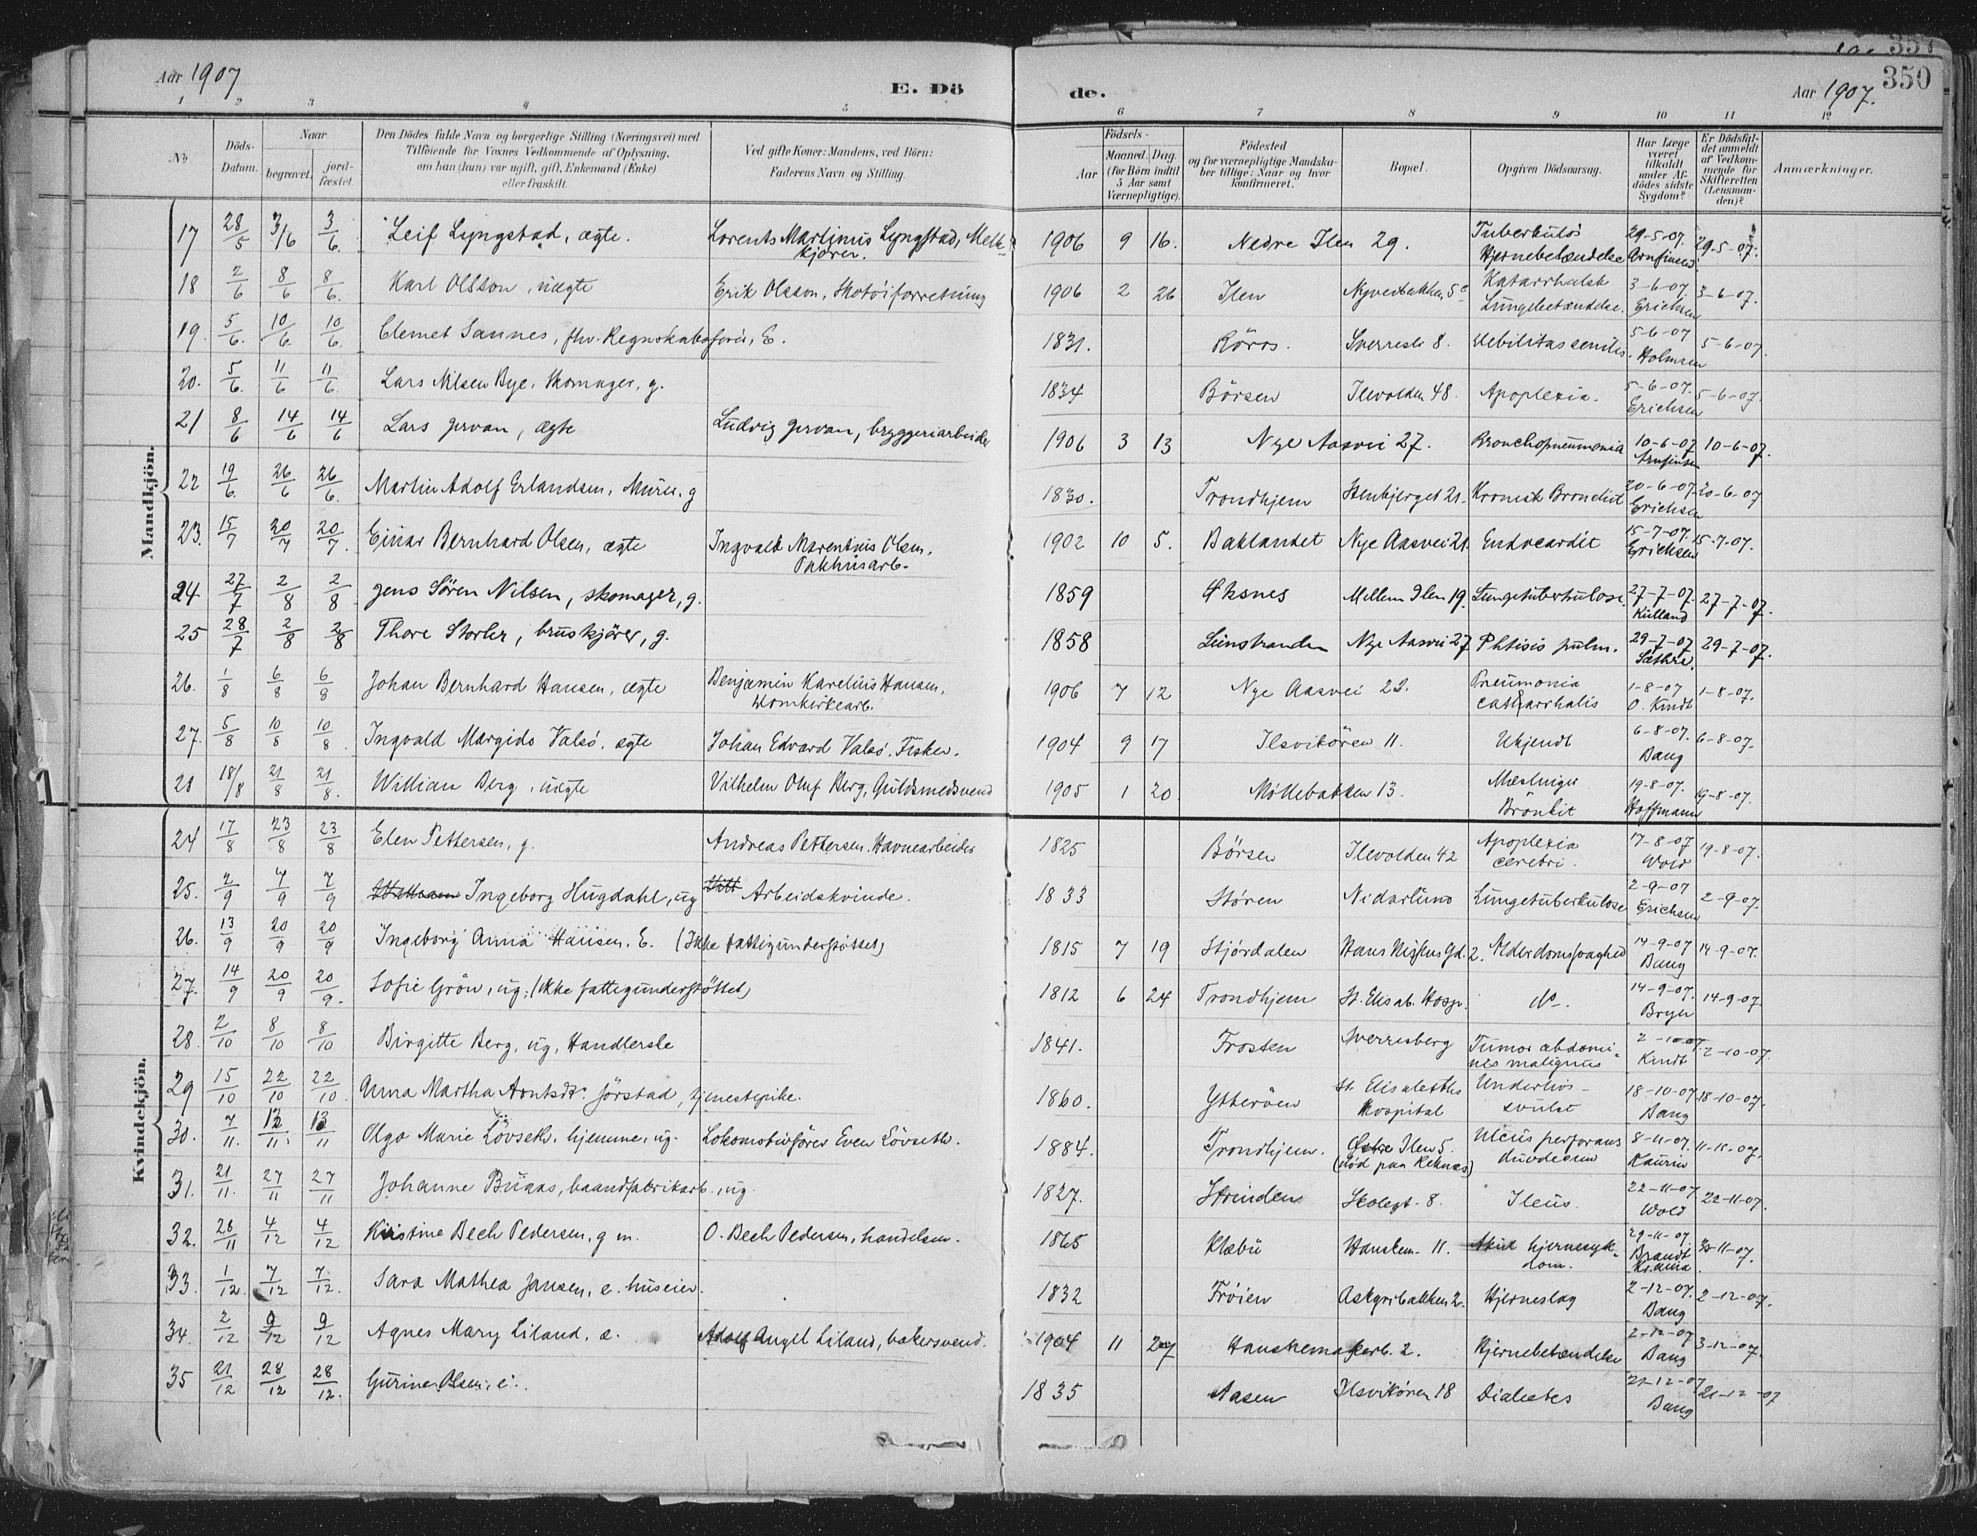 Aar 1907 E. Dö de. Aar 1907. 350
1 2 3 4 5 6 7 8 9 10 11 12
No Döds-Datum. Naar begravet. jordfæstet. Den Dödes fulde Navn og borgerlige Stilling (Næringsvei) med Tilföiende for Voxnes Vedkommende af Oplysning, om han (hun) var ugift, gift, Enkemand (Enke) eller fraskilt. Ved gifte Koner: Mandens, ved Börn: Faderens Navn og Stilling. Födsels- Aar Maaned. Dag. (for Börn indtil 5 Aar samt Værnepligtige) Födested og for værnepligtige Mandskaber tillige: Naar og hvor konfirmeret. Bopæl. Opgiven Dödsaarsag. Har Læge været tilkaldt under Afdödes sidste Sygdom? Er Dödsfaldet anmeldt af Vedkommende for Skifteretten (Lensmanden)? Anmærkninger.
Mandkjön.
17 28/5 3/6 3/6 Leif Lyngstad, ægte. Lorents Martinius Lyngstad, Melkkjører. 1906 9 16. Nedre Ilen 29. Tuberkuløs Hjernebetændelse 29-5-07. Arnfinsen 29-5-07.
18 2/6 8/6 8/6 Karl Olsson, uægte Erik Olsson, Skotöiforretning 1906 2 26 Ilen Katarrhalsk Lungebetændelse. 3-6-07 Erichsen 3-6-07.
19. 5/6. 10/6. 10/6. Clemet Sannes, fhv. Regnskabsfører, E. 1831. Röros. Sverresb 8. Debilitas senilis. 5-6-07 Holmsen 5-6-07.
20. 5/6. 11/6 11/6. Lars Nilsen Bye, Skomager, g. 1834 Börsen Ilevolden 48. Apoplexia. 5-6-07. Erichsen 5-6-07
21 8/6 14/6 14/6 Lars Jervan, ægte Ludvig Jervan, bryggeriarbeider 1906 3 13 Nye Aasvei 27. Bronchopneumonia 10-6-07 Arnfinsen 10-6-07.
22 19/6. 26/6 26/6. Martin Adolf Erlandsen, Murer, g 1830. Trondhjem Stenbjerget 21. Kronisk Bronchit 20-6-07 Erichsen 20-6-07
23. 15/7 20/7 20/7. Einar Bernhard Olsen, ægte Ingvald Marentius Olsen, Pakhusarb. 1902 10 5. Baklandet Nye Aasvei 21. Endocardit 15-7-07. Erichsen 15-7-07.
24 27/7 2/8 2/8 Jens Sören Nilsen, skomager, g. 1859 Øksnes Mellem Ilen 19. Lungetuberkulose. 27-7-07. 27-7-07.
25 28/7 2/8 2/8 Thore Storler, bruskjører, g. 1858 Leinstranden Nye Aasvei 27 Phtisis pulm. 29-7-07 Sæthre. 29-7-07.
26. 1/8 6/8 6/8 Johan Bernhard Hansen, ægte Benjamin Karelius Hansen, Domkirkearb. 1906 7 12 Nye Aasvei 23. Pneumonia catharrhalis 1-8-07 O. Kindt 1-8-07.
27. 5/8 10/8 10/8. Ingvald Margido Valsö, ægte Johan Edvard Valsö, Fisker. 1904 9 17 Ilsvikören 11. Ukjendt 6-8-07. Bang 6-8-07.
28 18/8 21/8 21/8. William Berg, uægte Vilhelm Oluf Berg, Guldsmedsvend 1905 1 20 Möllebakken 13. Mæslinger Bronkit 19-8-07. Hoffmann 19-8-07.
Kvindekjön.
24 17/8 23/8 23/8 Elen Pettersen, g. Andreas Pettersen, Havnearbeider 1825 Börsen Ilevolden 42 Apoplexia cerebri. 17-8-07 Wold 19-8-07.
25. 2/9 7/9 7/9 Ingeborg Hugdahl, ug Arbeidskvinde. 1833 Støren Nidarlund Lungetuberkulose 2-9-07 Erichsen 2-9-07.
26. 13/9 20/9 20/9 Ingeborg Anna Hansen, E. (Ikke fattigunderstøttet) 1815 7 19 Stjørdalen Hans Nissens Gd. 2. Alderdomssvaghed 14-9-07 Bang 14-9-07.
27. 14/9 20/9 20/9. Sofie Grön, ug. (Ikke fattigunderstøttet) 1812 6 24 Trondhjem St. Elisab. Hosp. do. 14-9-07. Bryn 14-9-07.
28. 2/10 8/10 8/10 Birgitte Berg, ug, Handlerske 1841. Frosten Sverresberg Tumor abdominis malignus 2-10-07. Kindt 2-10-07.
29 15/10 22/10 22/10. Anna Martha Arntsdt. Jørstad, tjenestepike. 1860. Ytterøen St. Elisabeths Hospital Underlivssvulst 18-10-07. Bang 18-10-07.
30. 7/11. 13/11. 13/11 Olga Marie Lövseth, hjemme, ug. Lokomotivfører Even Lövseth. 1884. Trondhjem. Østre Ilen 5. (död paa Reknæs) Ulcus perforans duodenum 8-11-07. Kaurin 11-11-07.
31. 21/11. 27/11 27/11 Johanne Buaas, baandfabrikarb., ug. 1827. Strinden Skolegt. 8. Ileus. 22-11-07 Wold 22-11-07.
32. 28/11 4/12 4/12 Kristine Bech Pedersen, g m. O. Bech Pedersen, handelsm. 1865 Klæbu Hanskem. 11. Akut hjernesykdom. 29-11-07. Brandt Krania 30-11-07.
33. 1/12. 7/12 7/12. Sara Mathea Jansen, e. huseier. 1832 Frøien Asbyrnbakken 2. Hjerneslag 2-12-07. Bang 2-12-07.
34. 2/12 9/12 9/12 Agnes Mary Liland, æ. Adolf Angel Liland, bakersvend. 1904 11 27 Hanskemakerb. 2. Hjernebetændelse 2-12-07 Bang 3-12-07.
35 21/12 28/12 28/12. Gurine Olsen, e. 1835 Aasen Ilsvikören 18 Diabetes 21-12-07 Bang 21-12-07